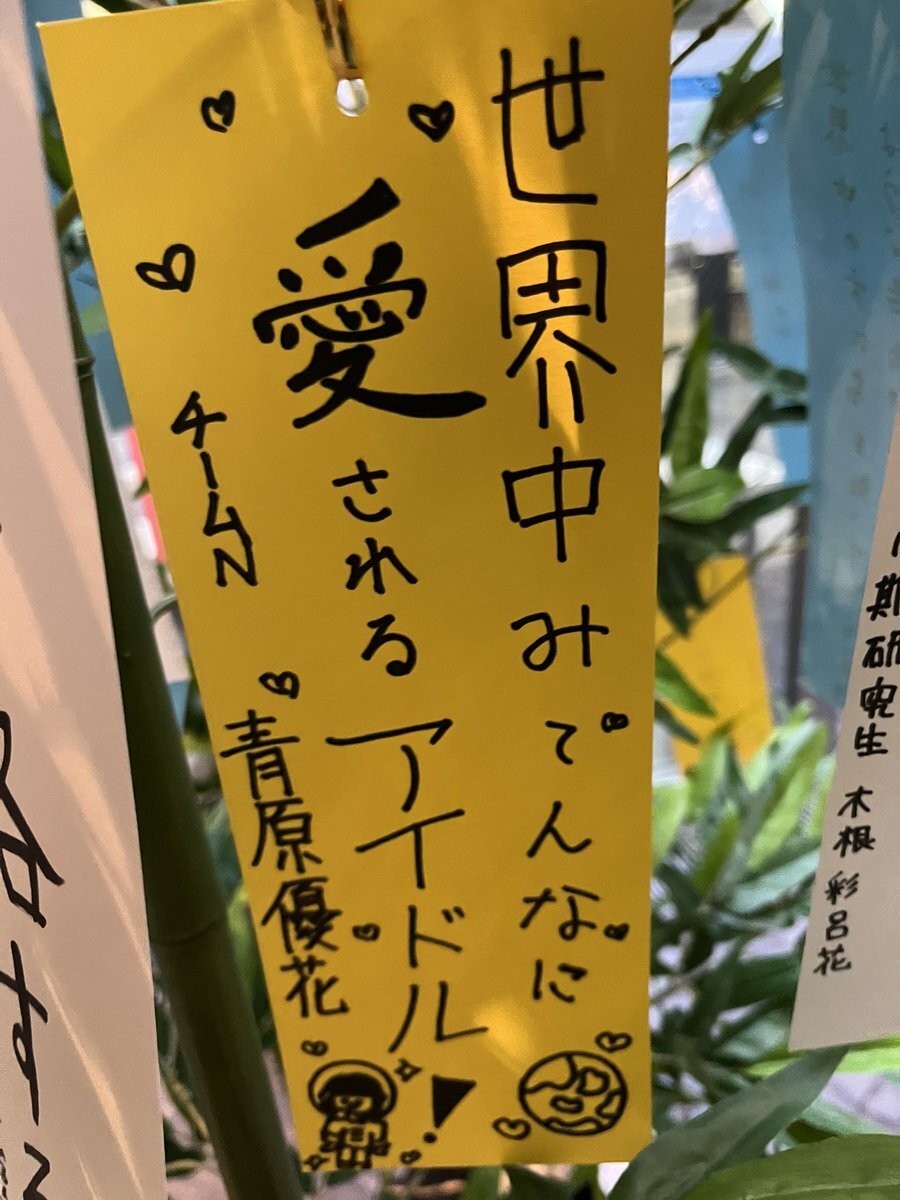 世界中みでんなに
愛されるアイドル!
チームN
青原優花
期研究生 木根 彩呂花